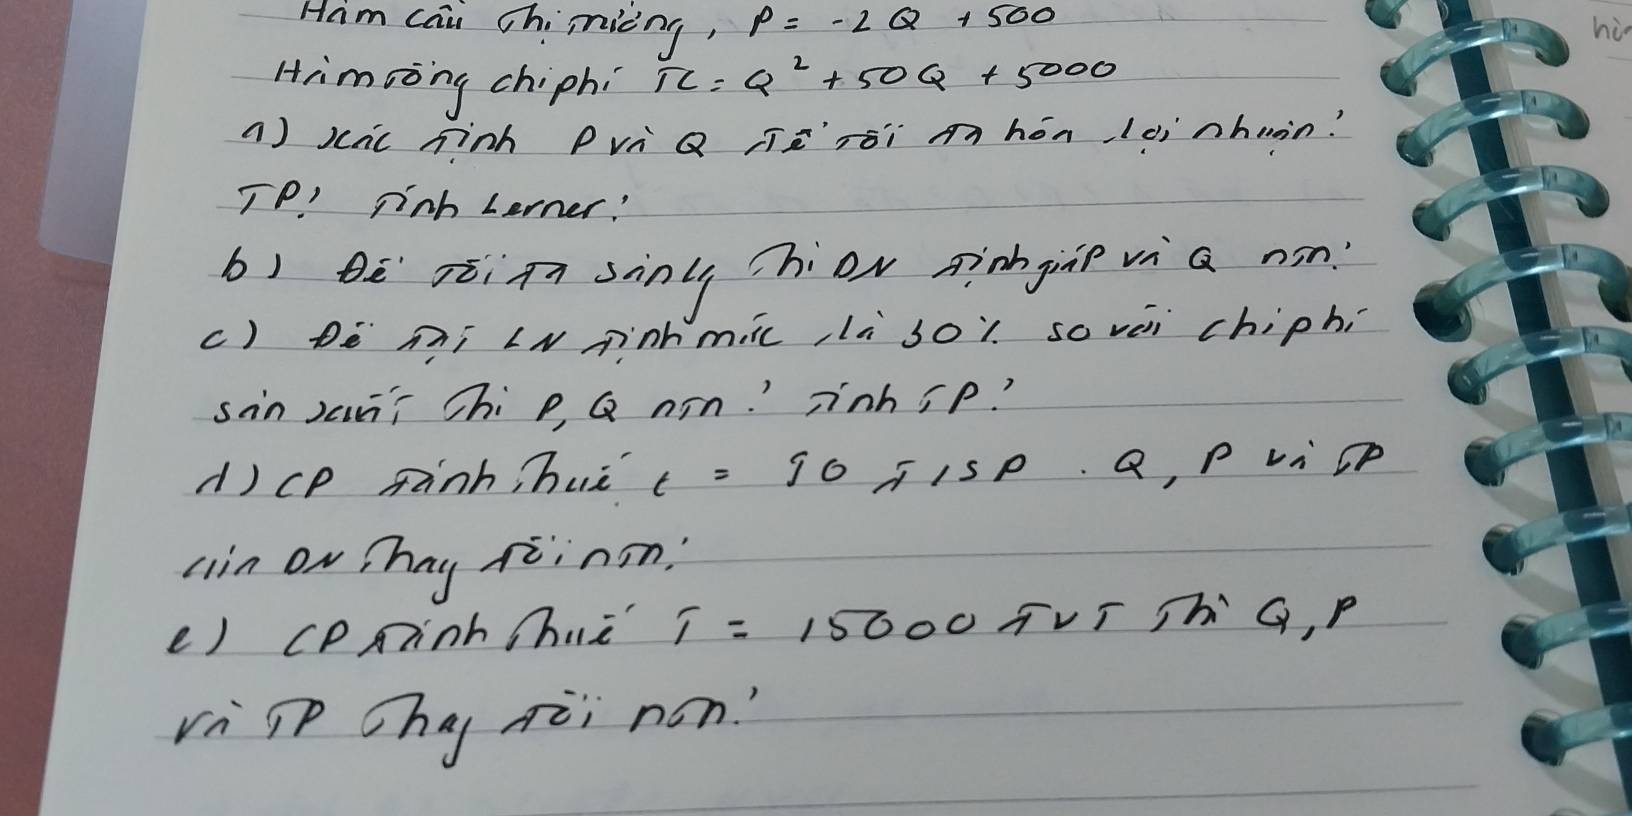 Hàm cầu thị trường, P = -2Q + 500
Hàm tổng chi phí TC = Q² + 50Q + 5000
a) xác định P và Q để tối đa hóa lợi nhuận?
TP? tính Lerner?
b) Để tối đa sản lg thì DN định giá P và Q ntn?
c) Để đạt LN định mức là 30% so với chi phí
sản xuất thì P, Q ntn? tính TP?
d) CP đánh thuế t = 90 đ/SP. Q, P và TP
của DN thay đổi ntn?
e) CP đánh thuế T = 15000 ĐVT thì Q, P
và TP thay đổi ntn?